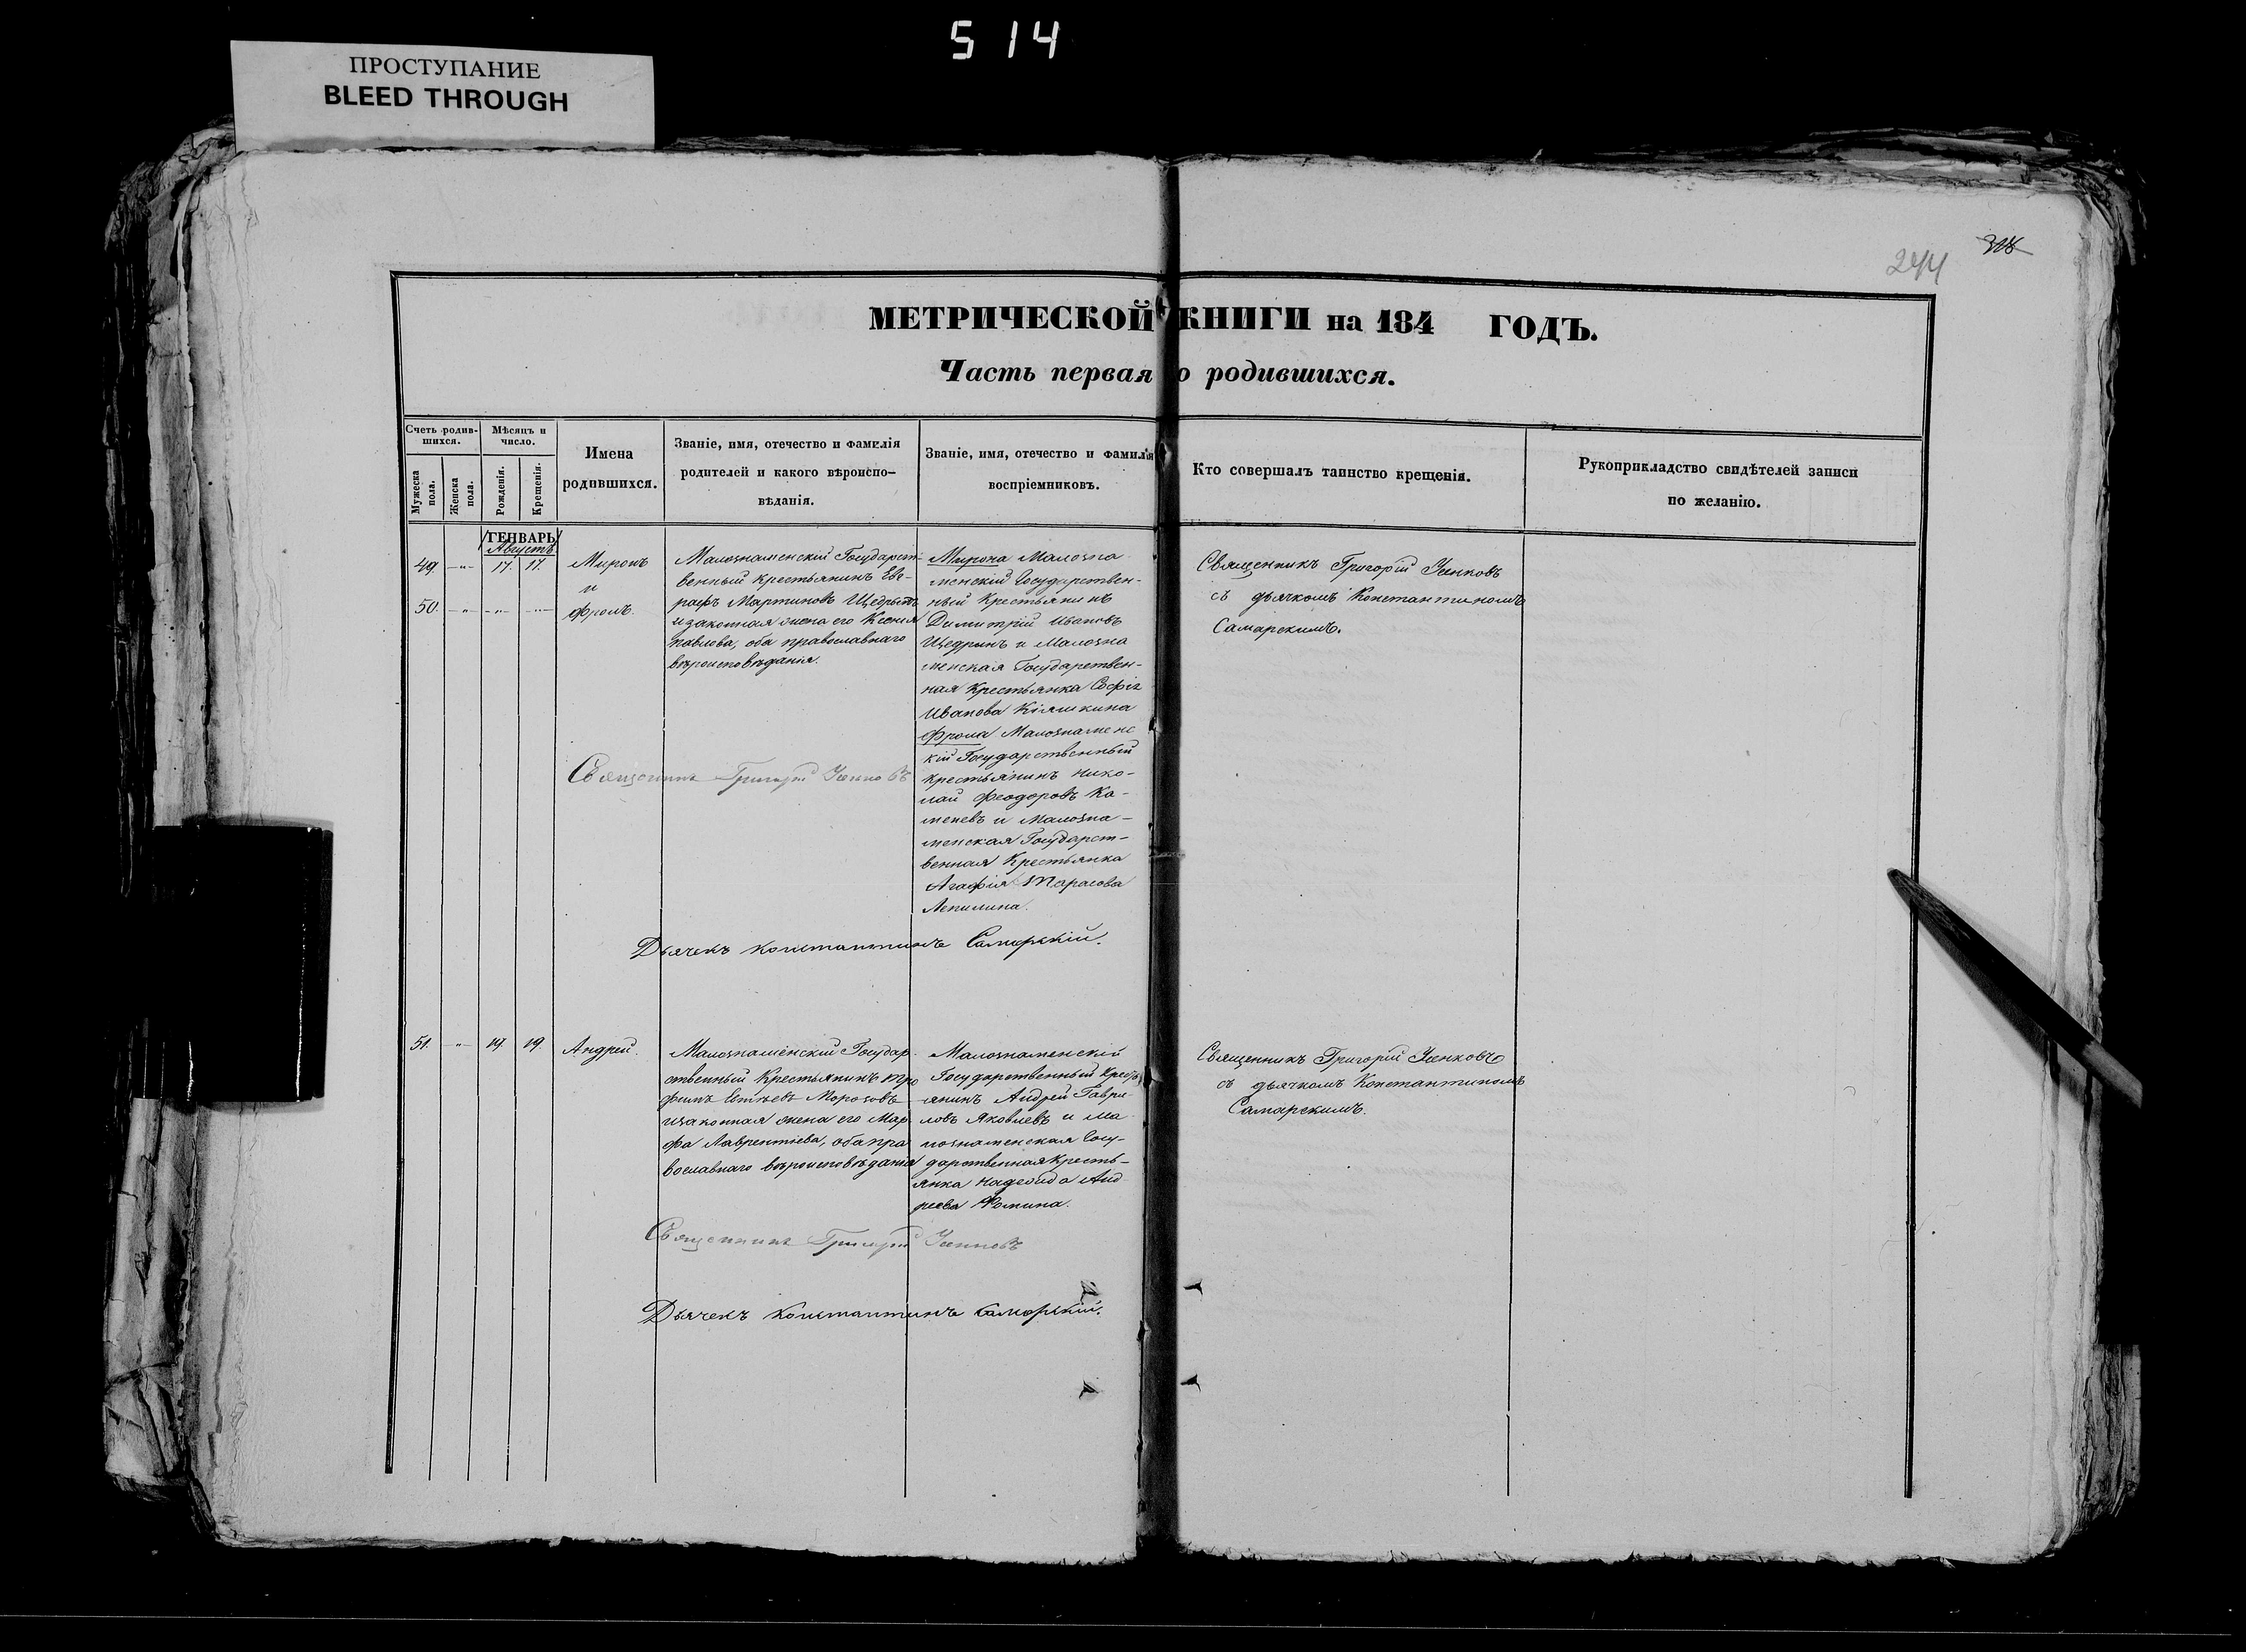 514
ПРОСТУПАНИЕ
BLEED THROUGH
244
318
МЕТРИЧЕСКОЙ КНИГИ на 184 ГОДЪ.
Часть первая о родившихся.
Счетъ родив-
шихся.
Мѣсяцъ и
число.
Мужеска
пола.
Женска
пола.
Рожденія.
Крещенія.
Имена
родившихся.
Званіе, имя, отечество и фамилія
родителей и какого вѣроиспо-
вѣданія.
Званіе, имя, отечество и фамилія
воспріемниковъ.
Кто совершалъ таинство крещенія.
Рукоприкладство свидѣтелей записи
по желанію.
ГЕНВАРЬ
Августъ
49. -"- 17. 17.
Миронъ
и
50. -"- -"- -"-
Фролъ.
Малознаменскій Государст-
венный Крестьянинъ Ев-
рафъ Мартиновъ Щедринъ
и законная жена его Ксенія
Павлова, оба православнаго
вѣроисповѣданія.
Мирона Малозна
менскій Государствен-
ный Крестьянинъ
Димитрій Ивановъ
Щедринъ и Малозна
менская Государствен-
ная Крестьянка Софія
Иванова Кіяшкина
Фрола Малознаменс
кій Государственный
Крестьянинъ Нико-
лай Феодоровъ Ка-
меневъ и Малозна-
менская Государст-
венная Крестьянка
Агафія Тарасова
Лепилина.
Священникъ Григорій
съ дьячкомъ Константиномъ
Самарскимъ.
Священникъ Григорій
Дьячекъ Константинъ Самарскій.
51. -"- 19. 19.
Андрей.
Малознаменскій Государ-
ственный Крестьянинъ Тро
фимъ Морозовъ
и законная жена его Мар
фа Лаврентіева, оба пра
вославнаго вѣроисповѣданія
Малознаменскій
Государственный Кресть
янинъ Андрей Гаври
ловъ Яковлевъ и Ма
лознаменская Госу-
дарственная Кресть-
янка Надежда Анд
реева Фомина.
Священникъ Григорій
съ дьячкомъ Константиномъ
Самарскимъ.
Священникъ Григорій
Дьячекъ Константинъ Самарскій.